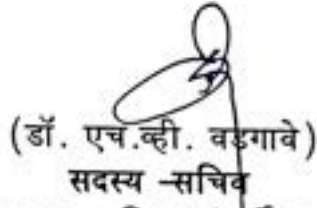 (डॉ. एच.व्ही. वडगावे)
सदस्य -सचिव